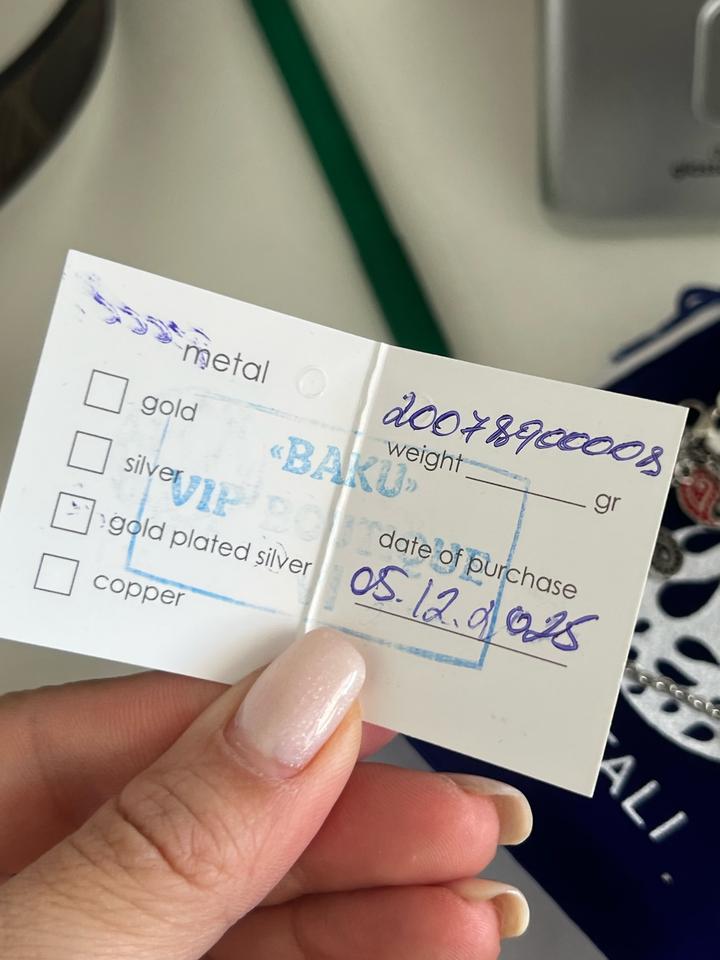 metal
gold
silver
gold plated silver
copper
20078900008
weight gr
date of purchase
05.12.2025
«BAKU»
VIP BOUTIQUE
ALI